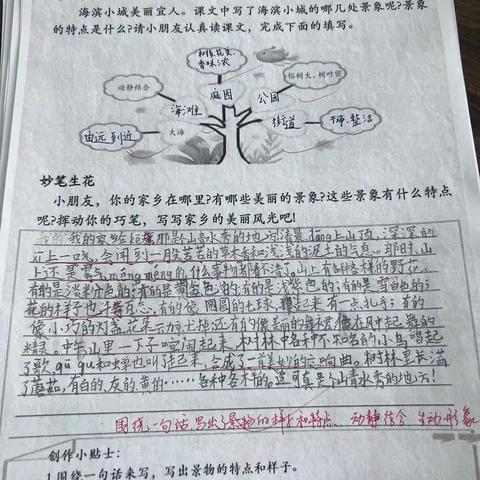 海滨小城美丽宜人。课文中写了海滨小城的哪几处景象呢?景象
的特点是什么?请小朋友认真读课文,完成下面的填写。
香味浓
动静结合
榕树大、树叶密
海滩
庭园
公园
由远到近
大海
街道
干净、整洁
妙笔生花
小朋友,你的家乡在哪里?有哪些美丽的景象?这些景象有什么特点
呢?挥动你的巧笔,写写家乡的美丽风光吧!
我的家乡在 那是个山青水秀的地方清晨,dēng上山顶,深深的
吸上一口,会闻到一股苦苦的草木香和浅浅的泥土的气息。那时,山
上还是雾气méngméng的,什么事物都看不清了。山上有各种各样的野花,
有的是淡粉色的;有的是黄金色的;有的是浅紫色的;有的是雪白色的;
花的样子也 有的像 圆圆的毛球, 起来有一点扎手;有的
像小巧的灯盏,花朵 还有的像美丽的舞裙,像在风中起舞的
精灵。中午山里一下子喧闹起来,树林中各种不知名的小鸟唱起
了歌,gū gu和蝉也叫了起来,合成了一首美妙的交响曲。树林里长满
了蘑菇,有白的、灰的、黄的……各种各样的。这可真是个山青水秀的地方!
围绕一句话写出了景物的样子和特点,动静结合 生动形象
创作小贴士:
1.围绕一句话来写,写出景物的特点和样子。